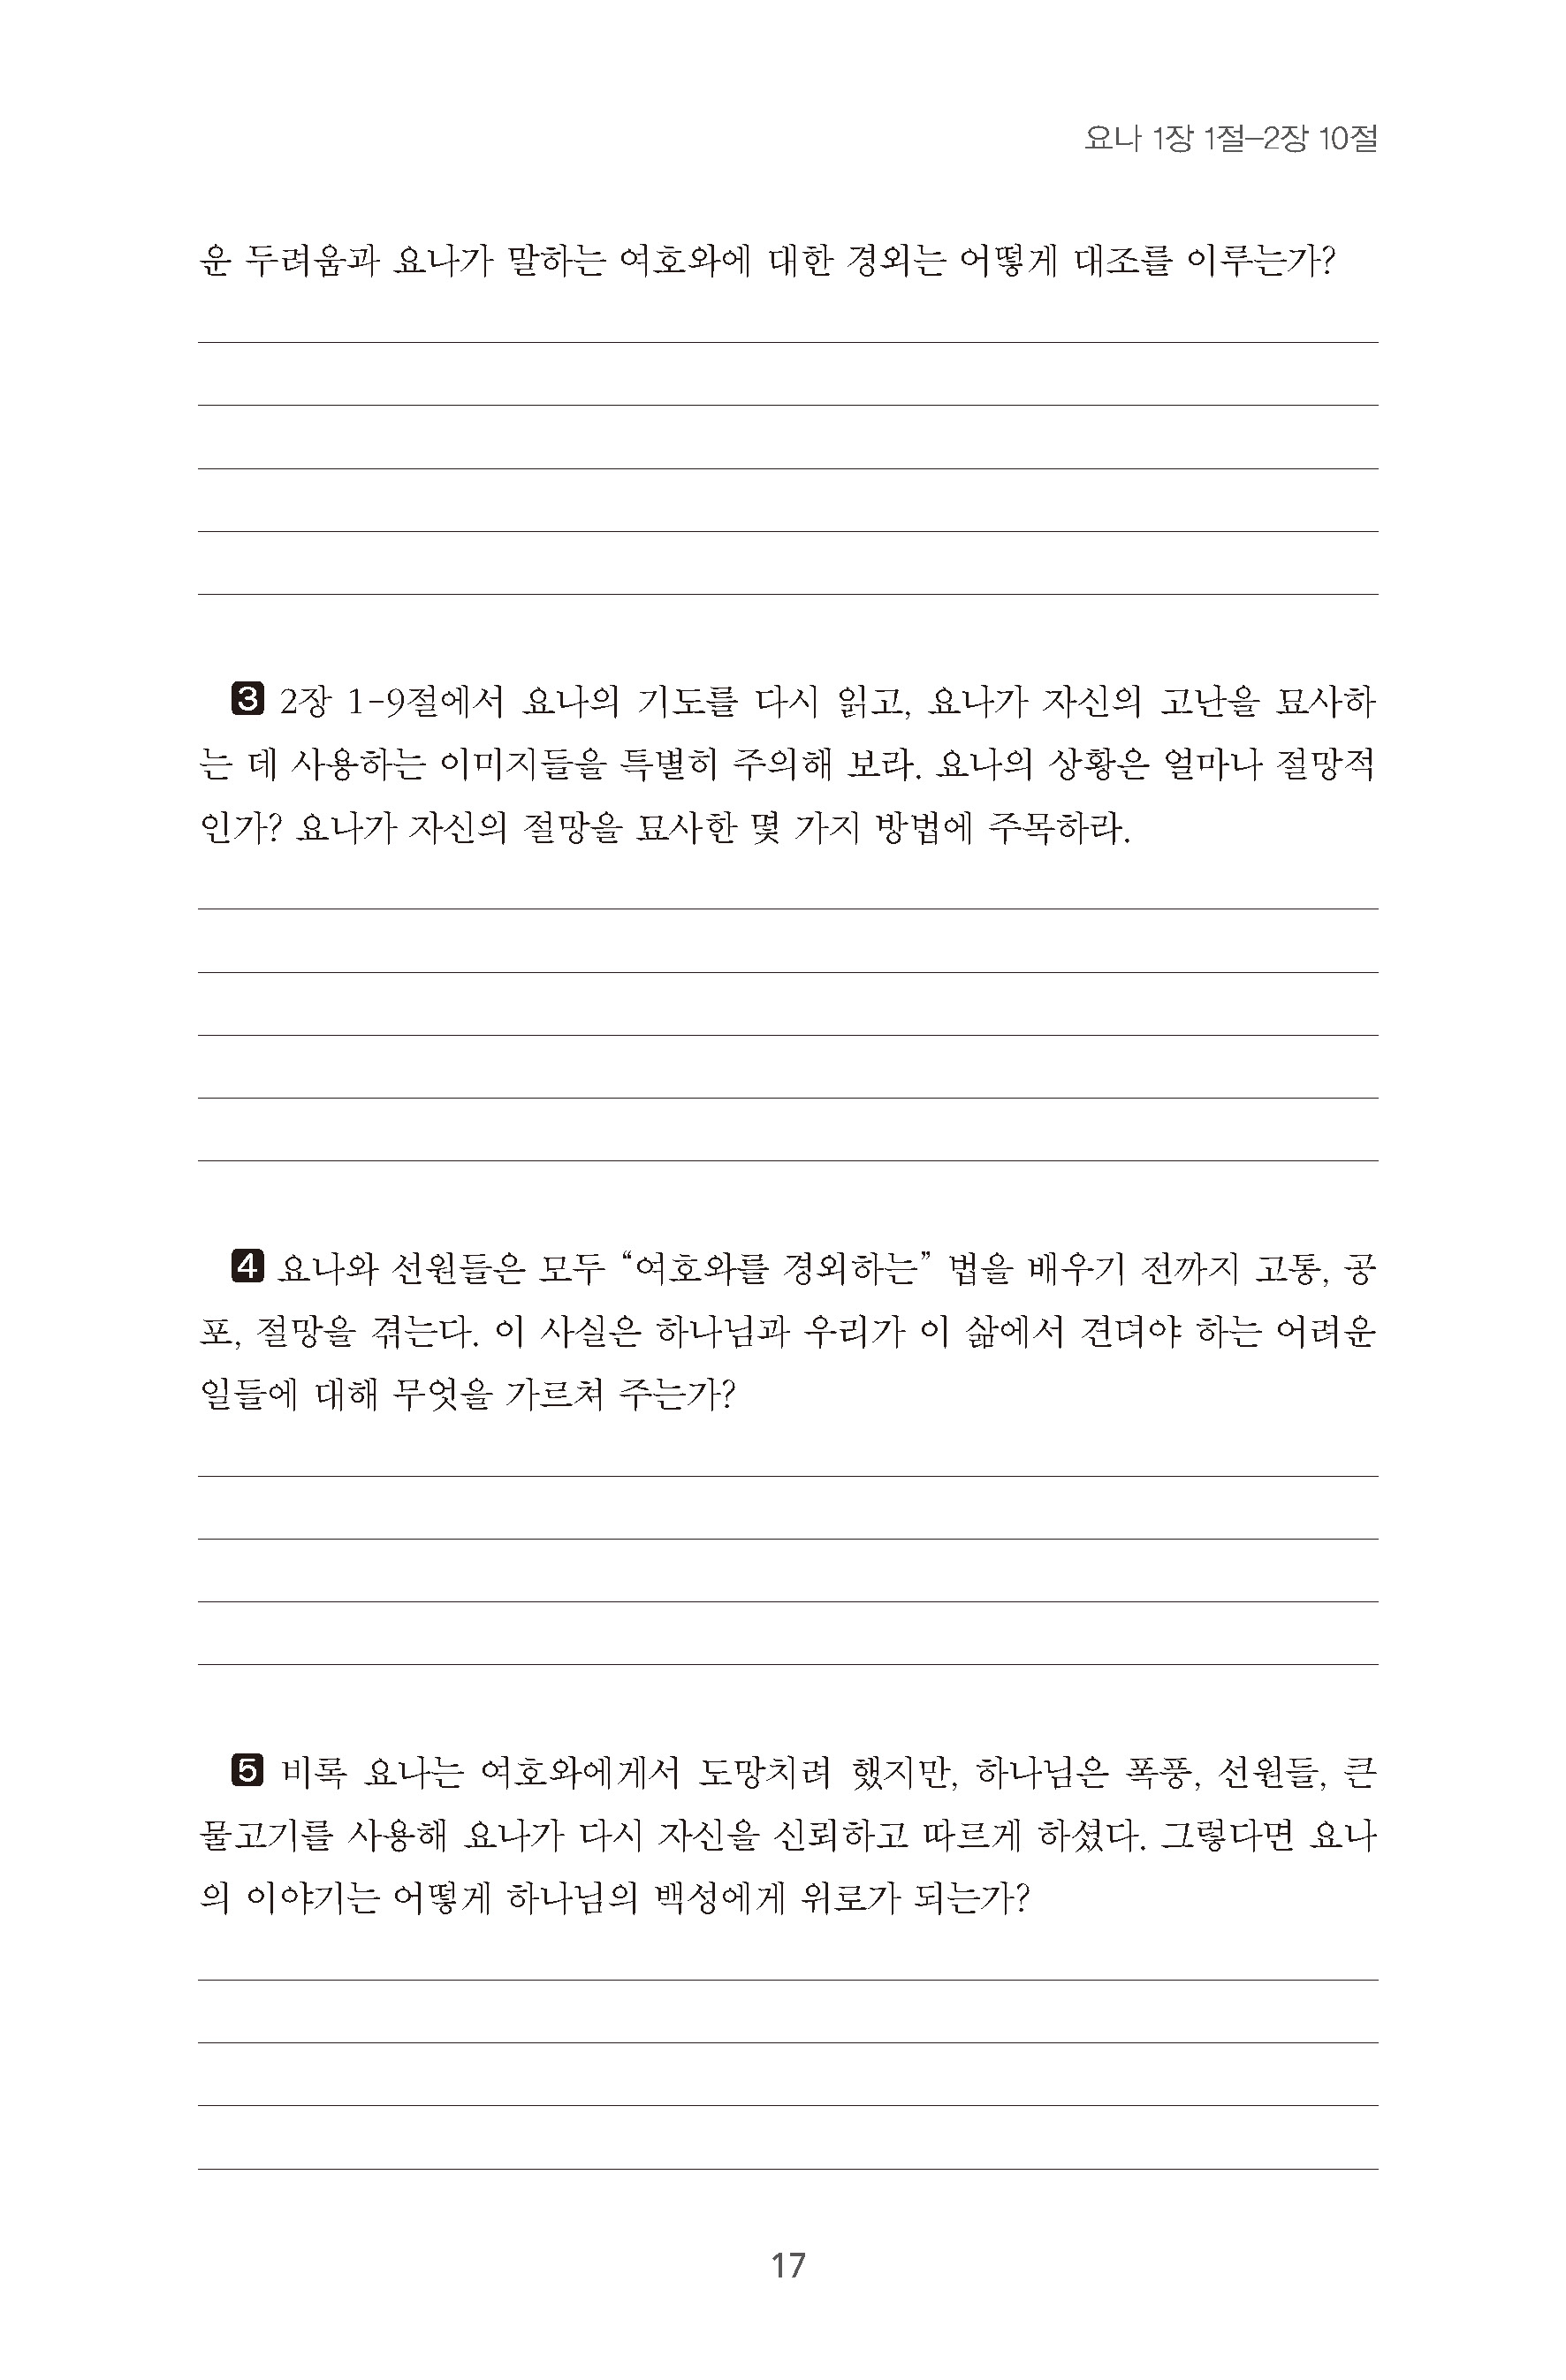 요나 1장 1절–2장 10절
운 두려움과 요나가 말하는 여호와에 대한 경외는 어떻게 대조를 이루는가?
3 2장 1-9절에서 요나의 기도를 다시 읽고, 요나가 자신의 고난을 묘사하
는 데 사용하는 이미지들을 특별히 주의해 보라. 요나의 상황은 얼마나 절망적
인가? 요나가 자신의 절망을 묘사한 몇 가지 방법에 주목하라.
4 요나와 선원들은 모두 “여호와를 경외하는” 법을 배우기 전까지 고통, 공
포, 절망을 겪는다. 이 사실은 하나님과 우리가 이 삶에서 견뎌야 하는 어려운
일들에 대해 무엇을 가르쳐 주는가?
5 비록 요나는 여호와에게서 도망치려 했지만, 하나님은 폭풍, 선원들, 큰
물고기를 사용해 요나가 다시 자신을 신뢰하고 따르게 하셨다. 그렇다면 요나
의 이야기는 어떻게 하나님의 백성에게 위로가 되는가?
17